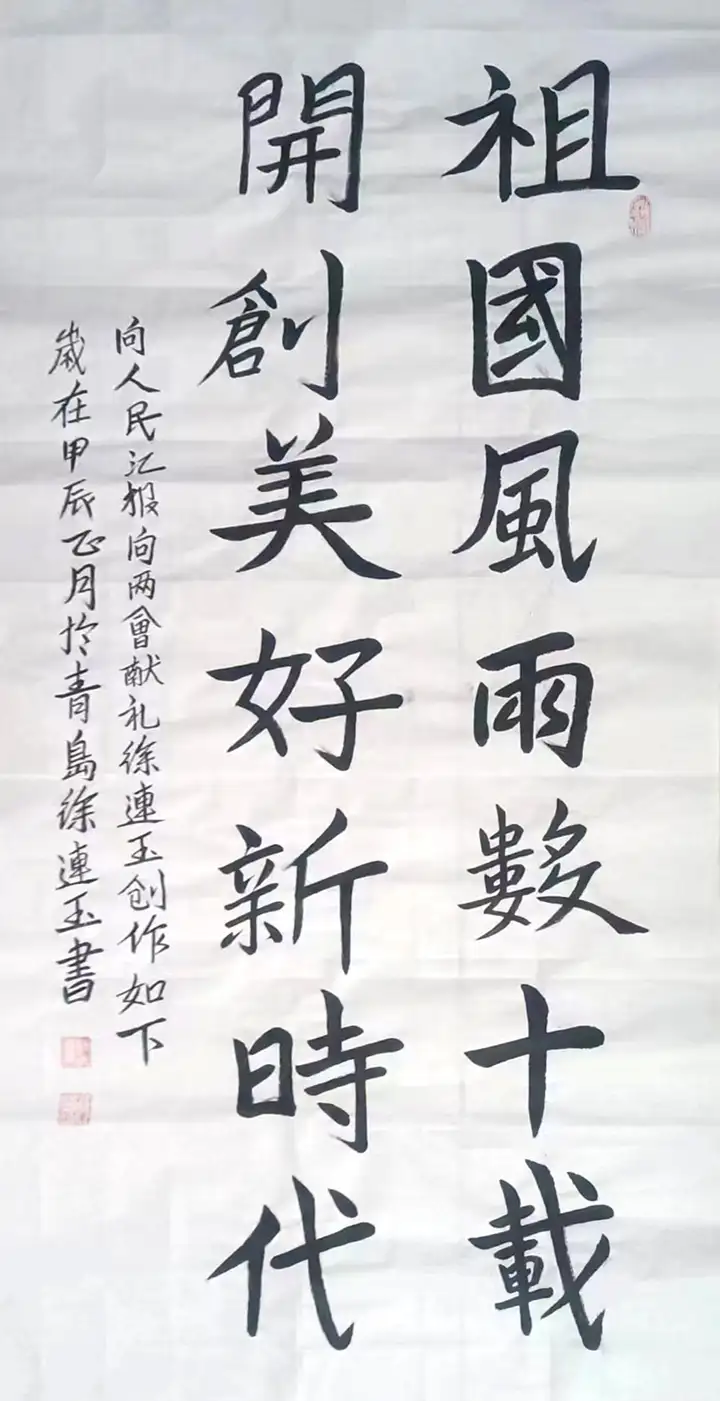 祖國風雨數十載
開創美好新時代
向人民汇报向两會献礼徐連玉创作如下
歲在甲辰正月於青島徐連玉書